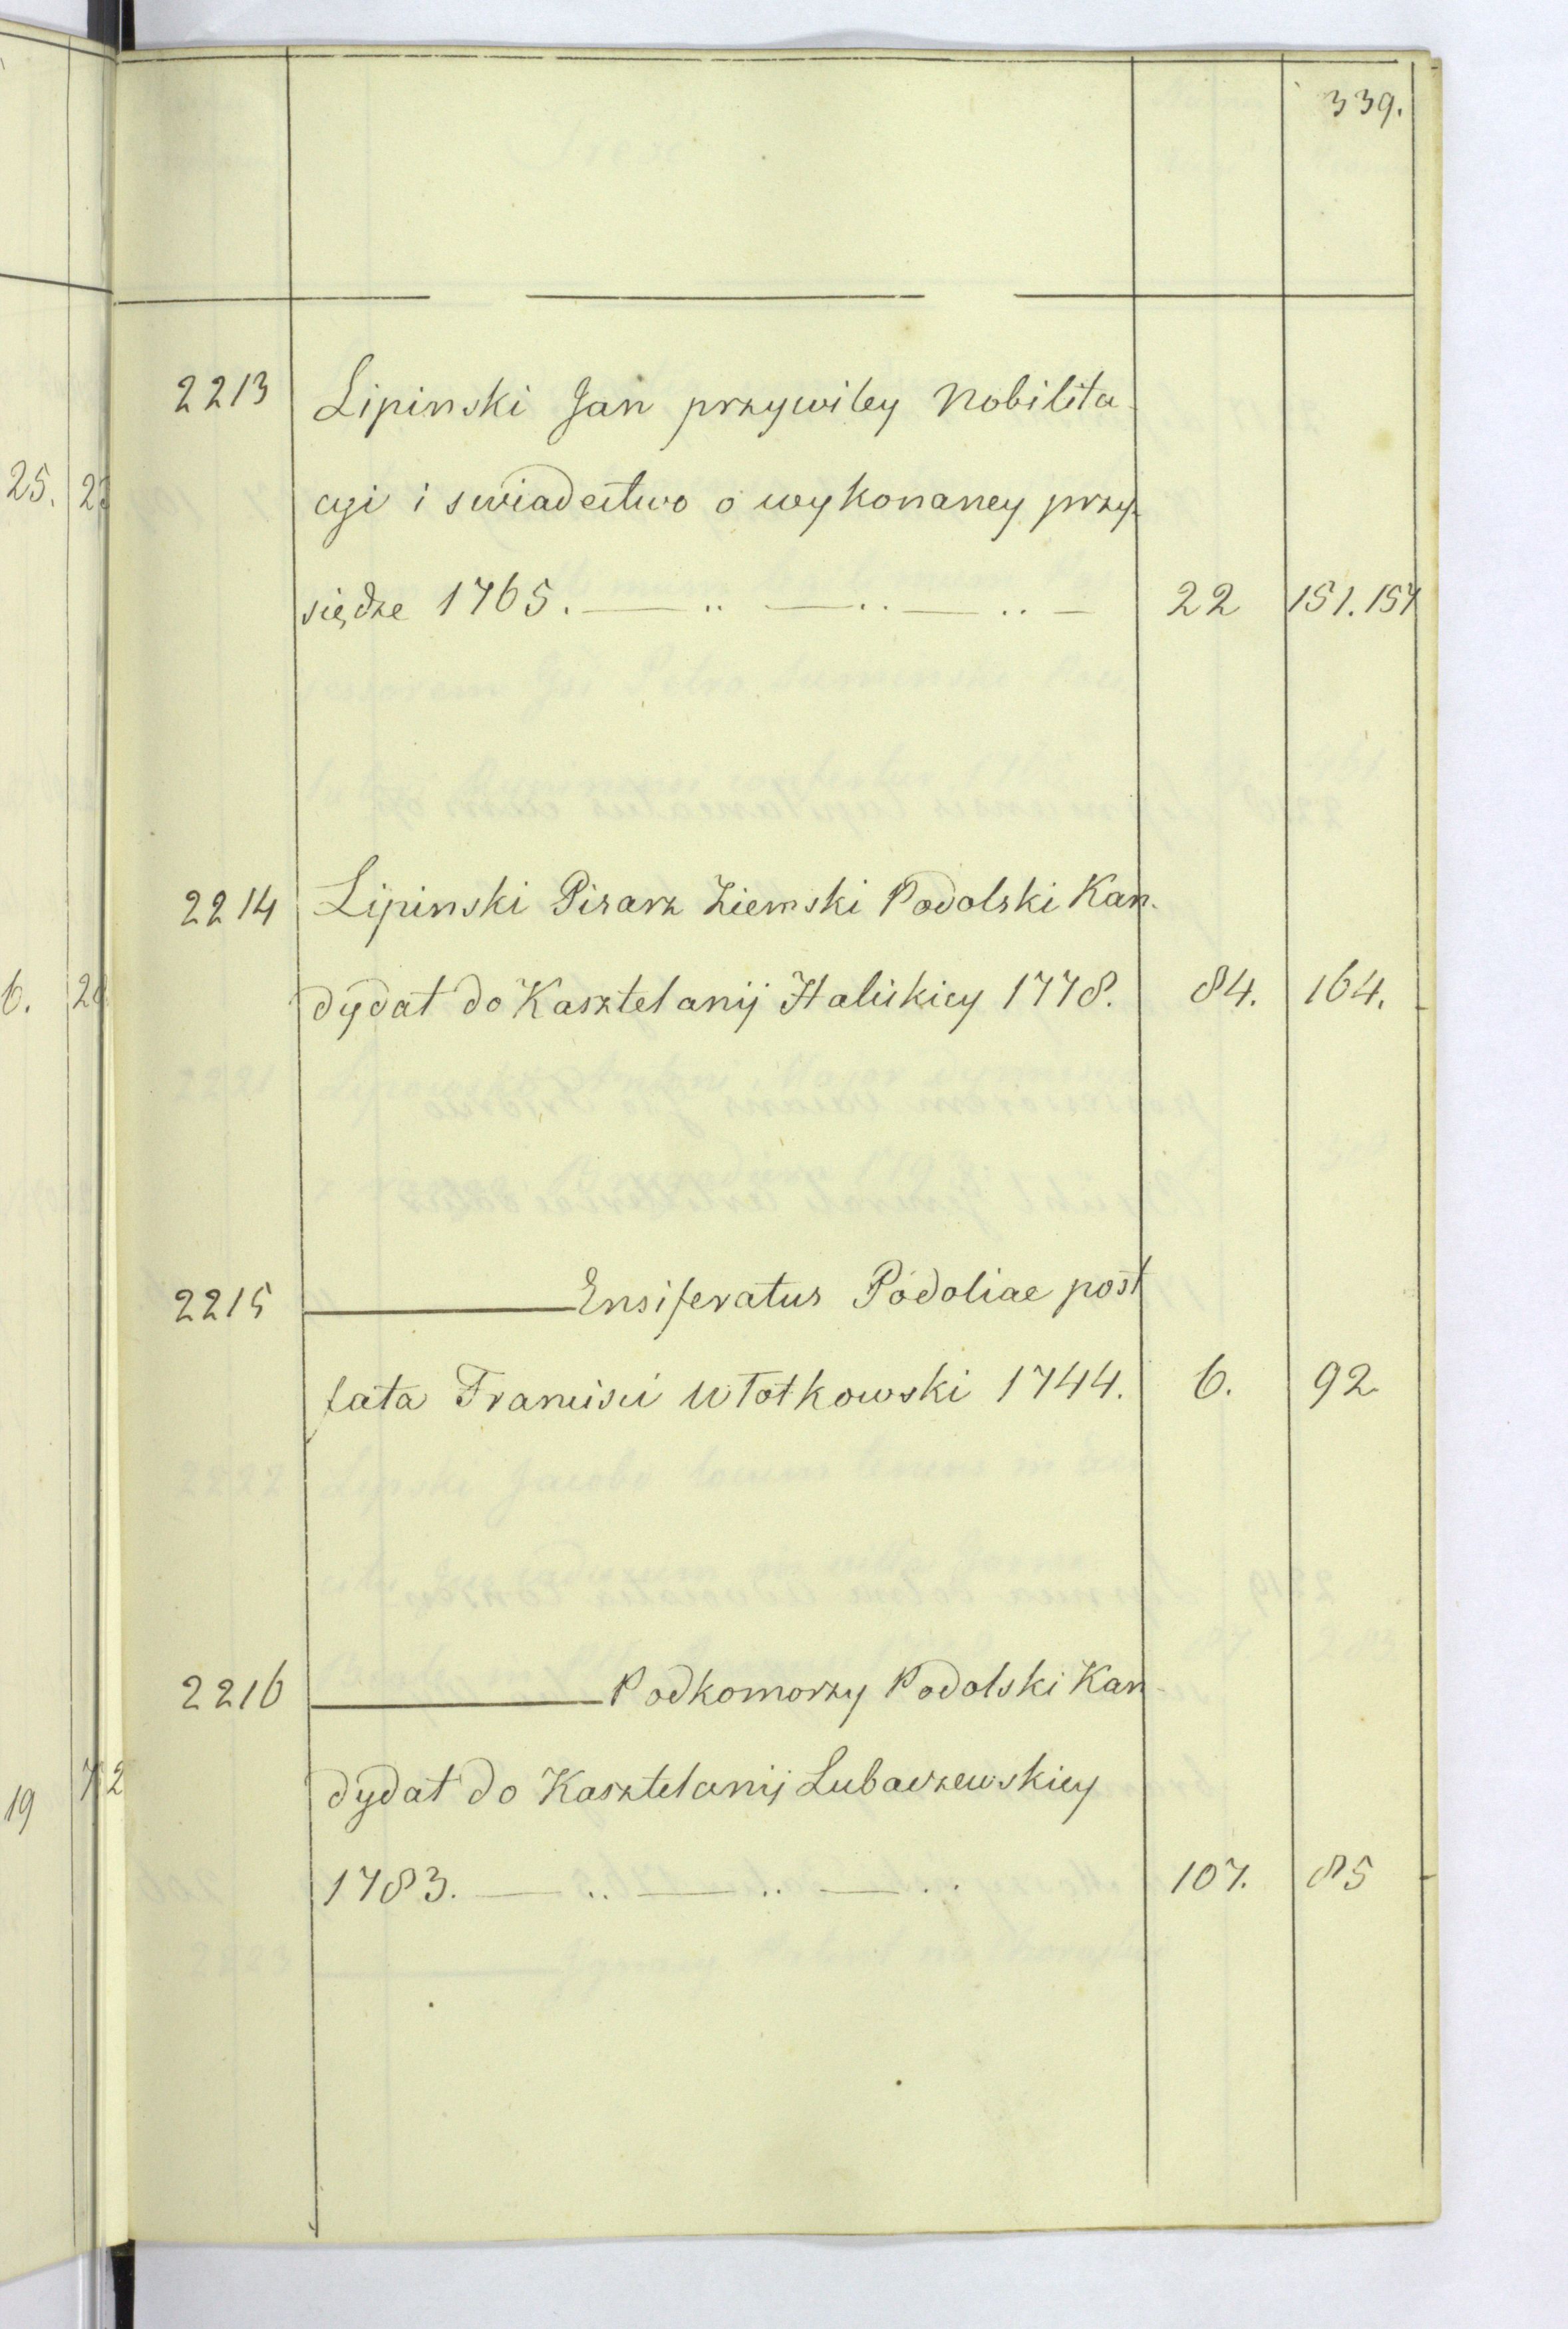 339.
2213 Lipinski Jan przywiley Nobilita-
cyi i swiadectwo o wykonaney przy-
siędze 1765. 22 151. 157
2214 Lipinski Pisarz Ziemski Podolski Kan-
dydat do Kasztelanij Halickiey 1778. 84. 164.
2215 ——— Ensiferatus Podoliae post
fata Francisci Wlotkowski 1744. 6. 92
2216 ——— Podkomorzy Podolski Kan-
dydat do Kasztelanij Lubaczewskiey
1783. 107. 85
25.
6.
19